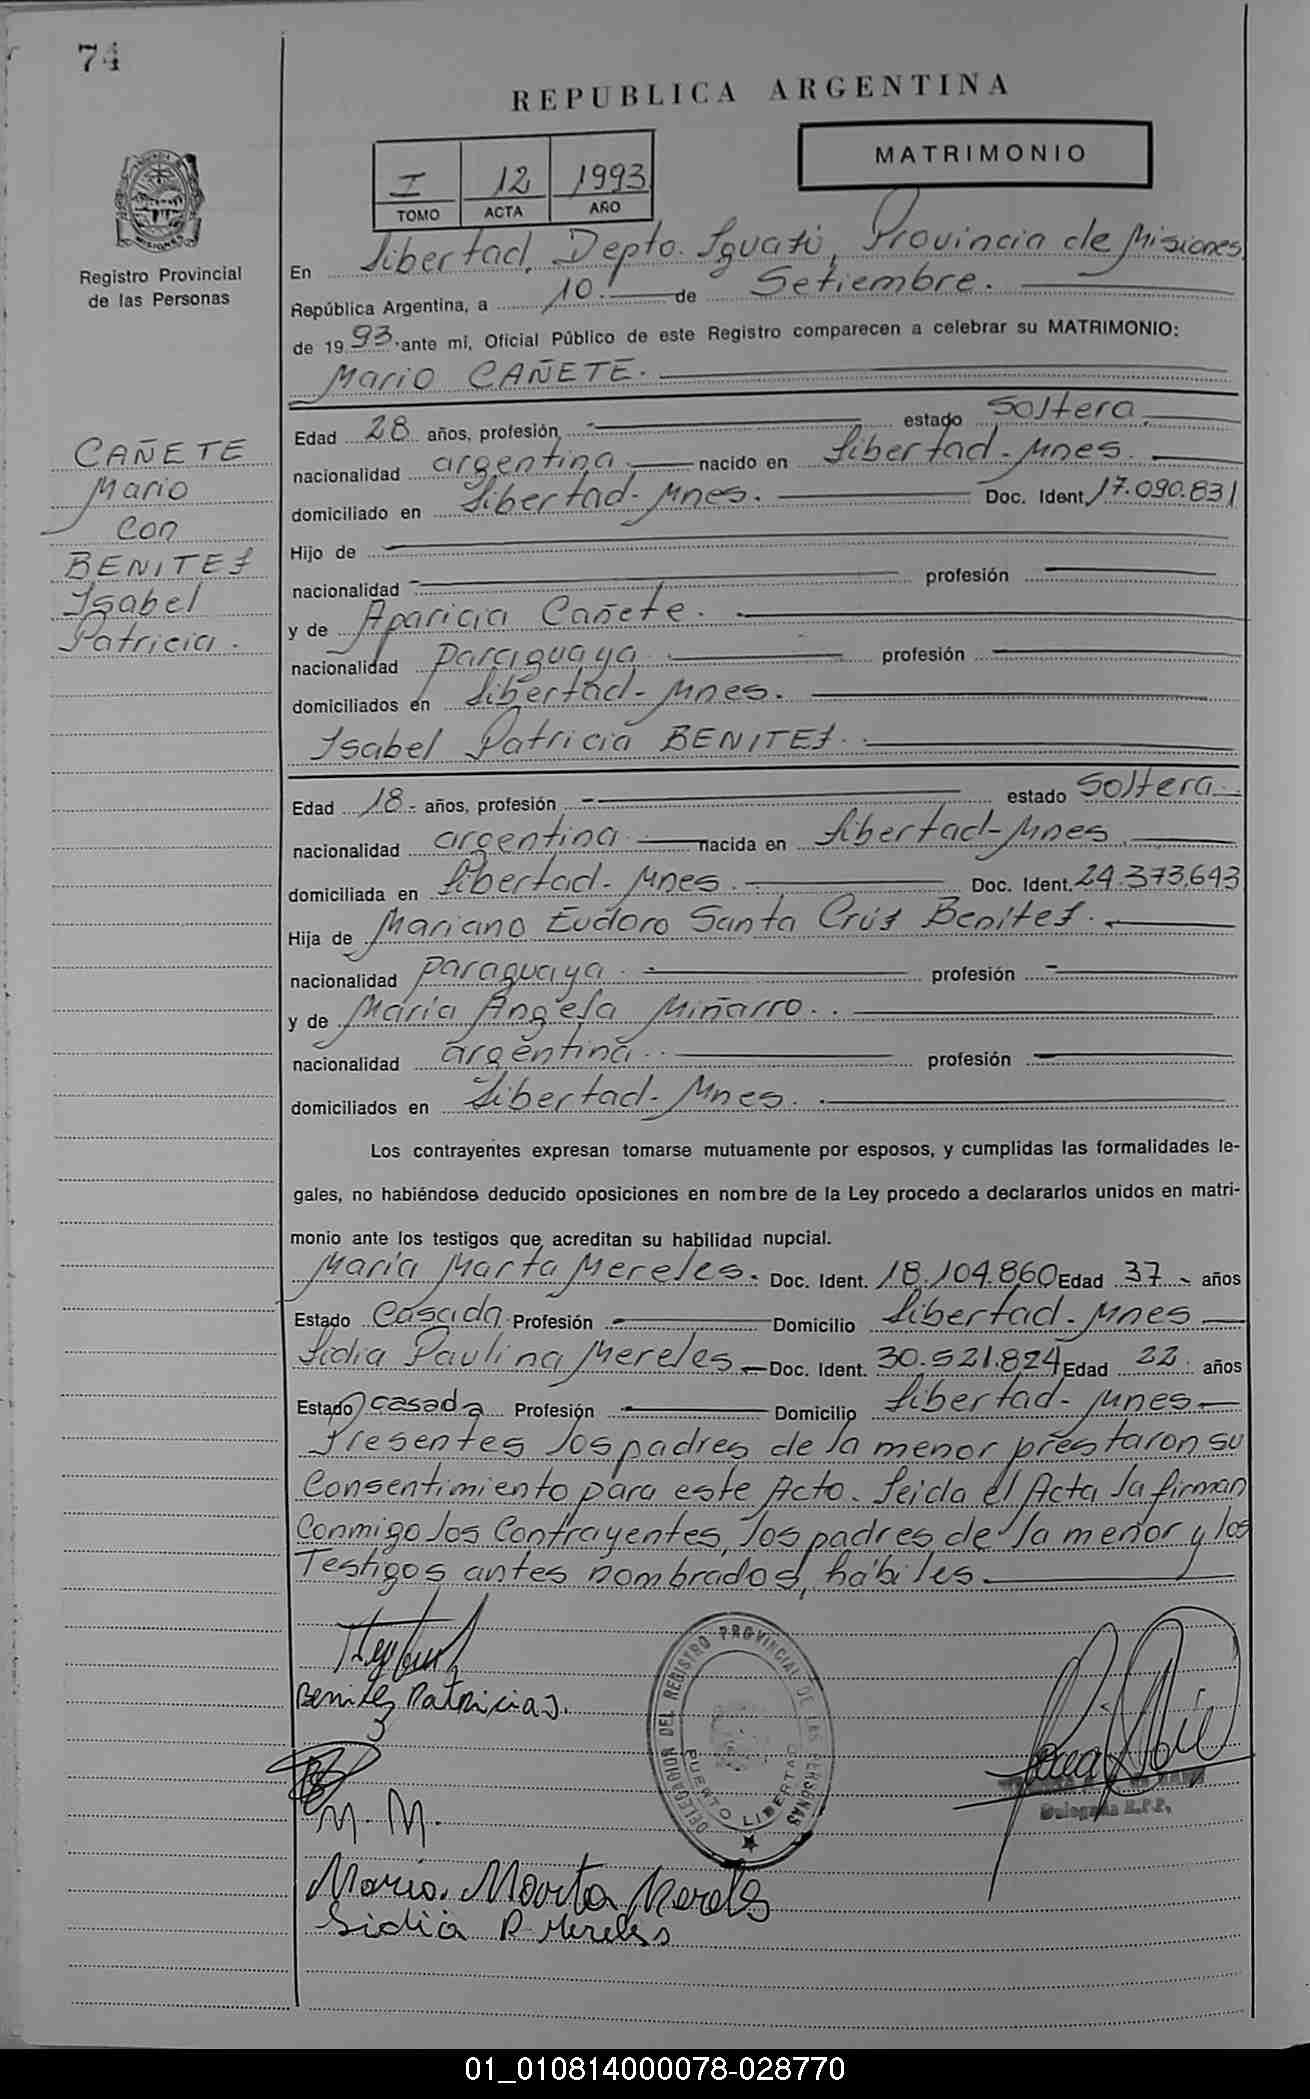 74
REPUBLICA ARGENTINA
MATRIMONIO
I 12 1993
TOMO ACTA AÑO
Registro Provincial
de las Personas
En Libertad, Depto. Iguazú, Provincia de Misiones
República Argentina, a 10. de Setiembre.
de 1993. ante mi, Oficial Público de este Registro comparecen a celebrar su MATRIMONIO:
Mario CAÑETE.
CAÑETE
Mario
Con
BENITEZ
Isabel
Patricia.
Edad 28 años, profesión estado Soltera
nacionalidad argentina nacido en Libertad-Mnes.
domiciliado en Libertad-Mnes. Doc. Ident. 17.090.831
Hijo de
nacionalidad profesión
y de Aparicia Cañete.
nacionalidad paraguaya profesión
domiciliados en Libertad-Mnes.
Isabel Patricia BENITEZ.
Edad 18.- años, profesión estado Soltera
nacionalidad argentina nacida en Libertad-Mnes.
domiciliada en Libertad-Mnes. Doc. Ident. 24.373.643
Hija de Mariano Eudoro Santa Crúz Benítez.
nacionalidad paraguaya. profesión
y de María Angela Miñarro.
nacionalidad argentina. profesión
domiciliados en Libertad-Mnes.
Los contrayentes expresan tomarse mutuamente por esposos, y cumplidas las formalidades le-
gales, no habiéndose deducido oposiciones en nombre de la Ley procedo a declararlos unidos en matri-
monio ante los testigos que acreditan su habilidad nupcial.
María Marta Mereles. Doc. Ident. 18.104.860 Edad 37 años
Estado Casada Profesión Domicilio Libertad-Mnes
Lidia Paulina Mereles Doc. Ident. 30.521.824 Edad 22 años
Estado casada Profesión Domicilio Libertad-Mnes
Presentes los padres de la menor prestaron su
Consentimiento para este Acto. Leida el Acta la firman
Conmigo los Contrayentes, los padres de la menor y los
Testigos antes nombrados, hábiles.
Benitez Patricia I.
DELEGACION DEL REGISTRO PROVINCIAL DE LAS PERSONAS
PUERTO LIBERTAD
Delegada R.P.P.
M. M.
Maria. Marta Mereles
Lidia P. Mereles
01_010814000078-028770